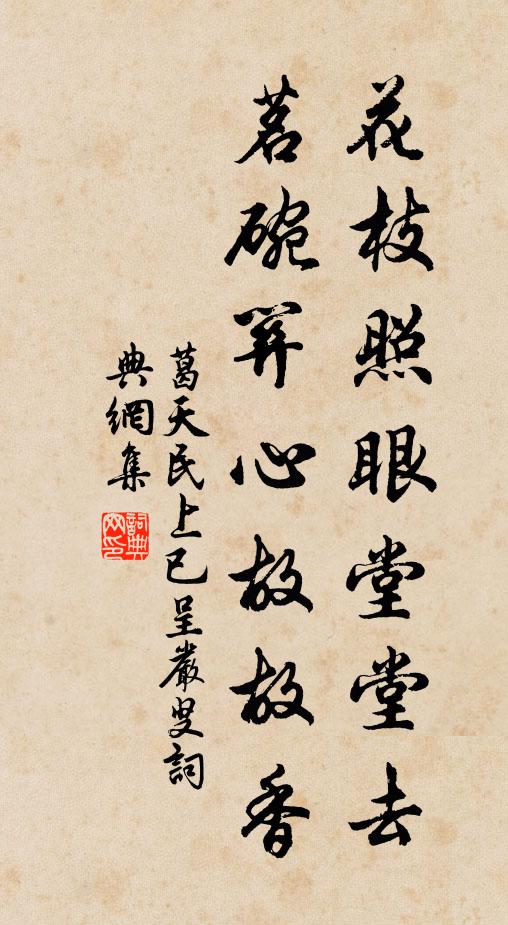 花枝照眼堂堂去
茗碗開心故故香
葛天民上巳呈嚴叟詞
典網集
詞典
网印